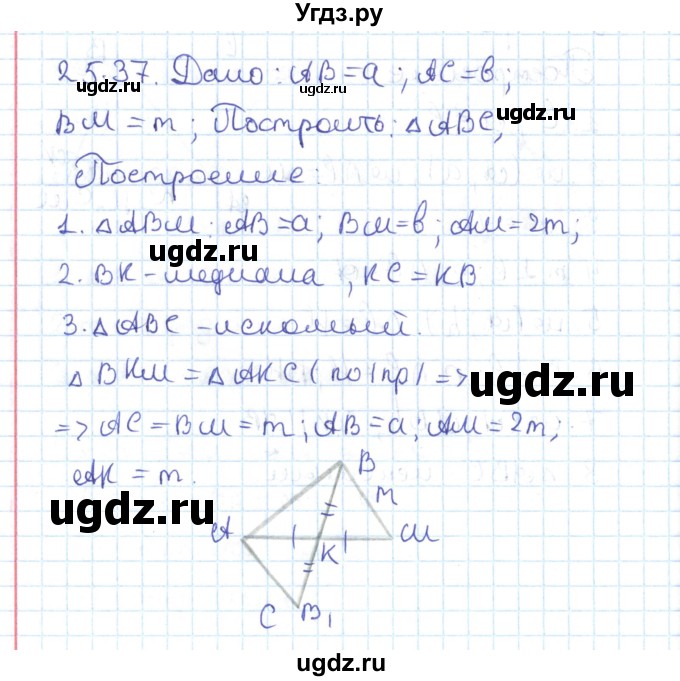 Угдз.ру
25.37. Дано: AB = a; AC = b;
BM = m; Построить: △ABC,
Построение:
1. △ABM: AB = a; BM = b; AM = 2m;
2. BK - медиана, KC = KB
3. △ABC - искомый.
△BKM = △AKC (по I пр) =>
=> AC = BM = m; AB = a; AM = 2m;
AK = m.
B
m
A
K
M
C B₁
ugdz.ru
ugdz.ru
ugdz.ru
ugdz.ru
ugdz.ru
ugdz.ru
ugdz.ru
ugdz.ru
ugdz.ru
ugdz.ru
ugdz.ru